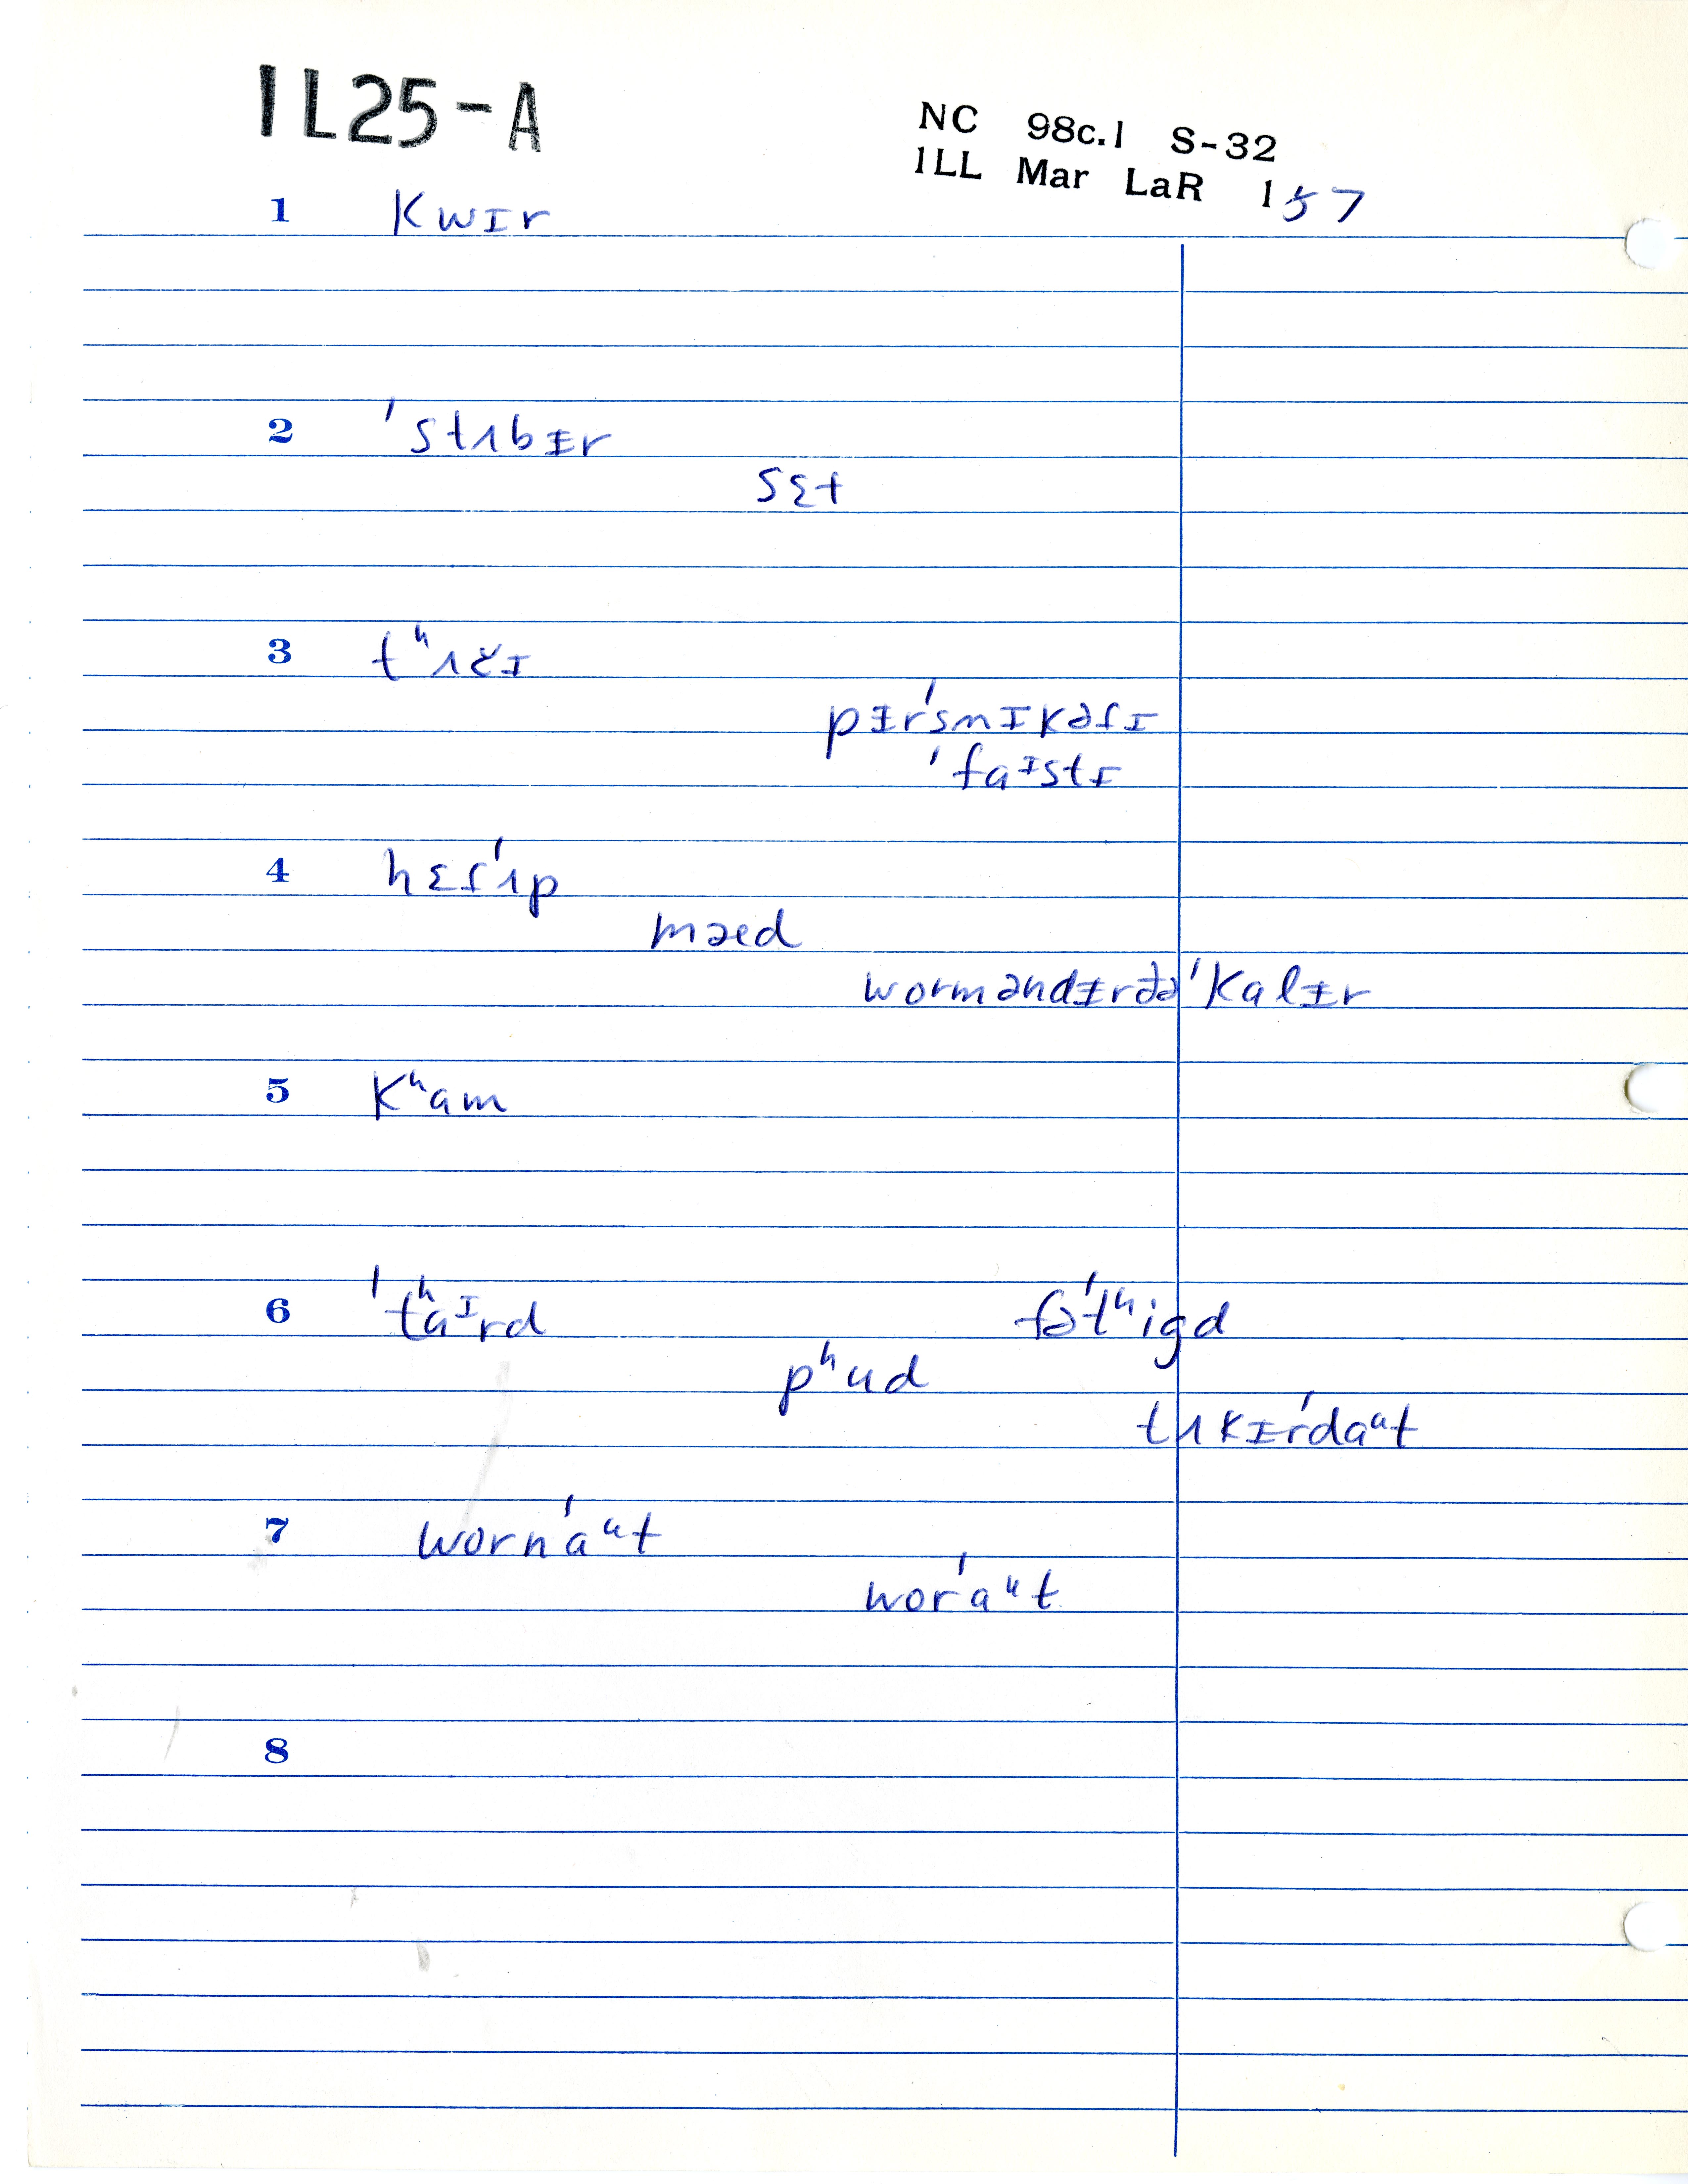 IL25-A
NC 98c.1 S-32
ILL Mar LaR 157
1 kwɪr
2 ˈstʌbᵻr
sɛt
3 tʰʌčɪ
pᵻrˈsnɪkəſɪ
ˈfaᶦstɪ
4 hɛſˈʌp
mæed
worməndᵻrðəˈkalᵻr
5 kʰam
6 ˈtʰaᶦrd fəˈtʰigd
pʰud
tʌkᵻrˈdaᵘt
7 wornˈaᵘt
worˈaᵘt
8